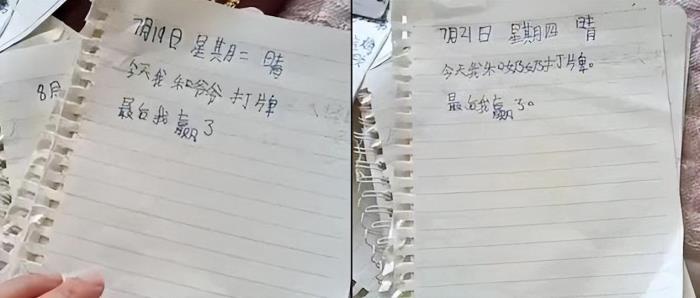 7月19日 星期二 晴
今天我和爷爷打牌
最后我赢了
8月
7月21日 星期四 晴
今天我和奶奶打牌。
最后我赢了。